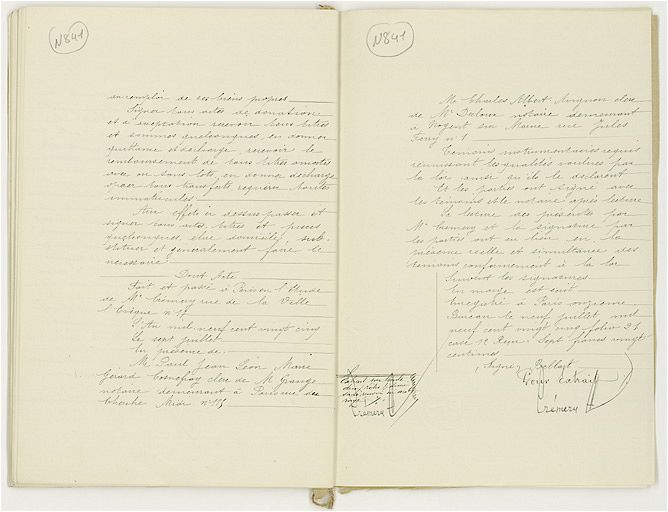 N841
en remploi de ses biens propres
Signer tous actes de donation
et d'acceptation recevoir tous titres
et sommes quelconques, en donner
quittance et décharge, recevoir le
remboursement de tous titres amortis
avec ou sans lots, en donner décharge
opérer tous transferts requérir toutes
immatricules.
Aux effets ci dessus passer et
signer tous actes, titres et pièces
élire domicile, subs-
tituer et généralement faire le
nécessaire
Dont Acte
Fait et passé à Paris en l'Etude
de Me Crémery rue de la Ville
l'Evêque n°
L'An mil neuf cent vingt cinq
Le sept juillet
En présence de:
M. Paul Jean Léon Marie
Gérard clerc de Me Grange
notaire demeurant à Paris rue du
Cherche Midi n° 115
N841
M. Charles Albert Avignon clerc
de Me Dalour notaire demeurant
à Nogent sur Marne rue Jules
Ferry n° 8
Témoins instrumentaires requis
réunissant les qualités voulues par
la loi ainsi qu'ils le déclarent
Et les parties ont signé avec
les témoins et le notaire après lecture
La lecture des présentes par
Me Crémery et la signature par
les parties ont eu lieu en la
présence réelle et simultanée des
témoins conformément à la loi
Suivent les signatures
En marge est écrit
Enregistré à Paris onzième
Bureau le neuf juillet mil
neuf cent vingt folio 26
case 12 Reçu: Sept francs vingt
centimes
Signé:
Pour Extrait
Crémery
Crémery